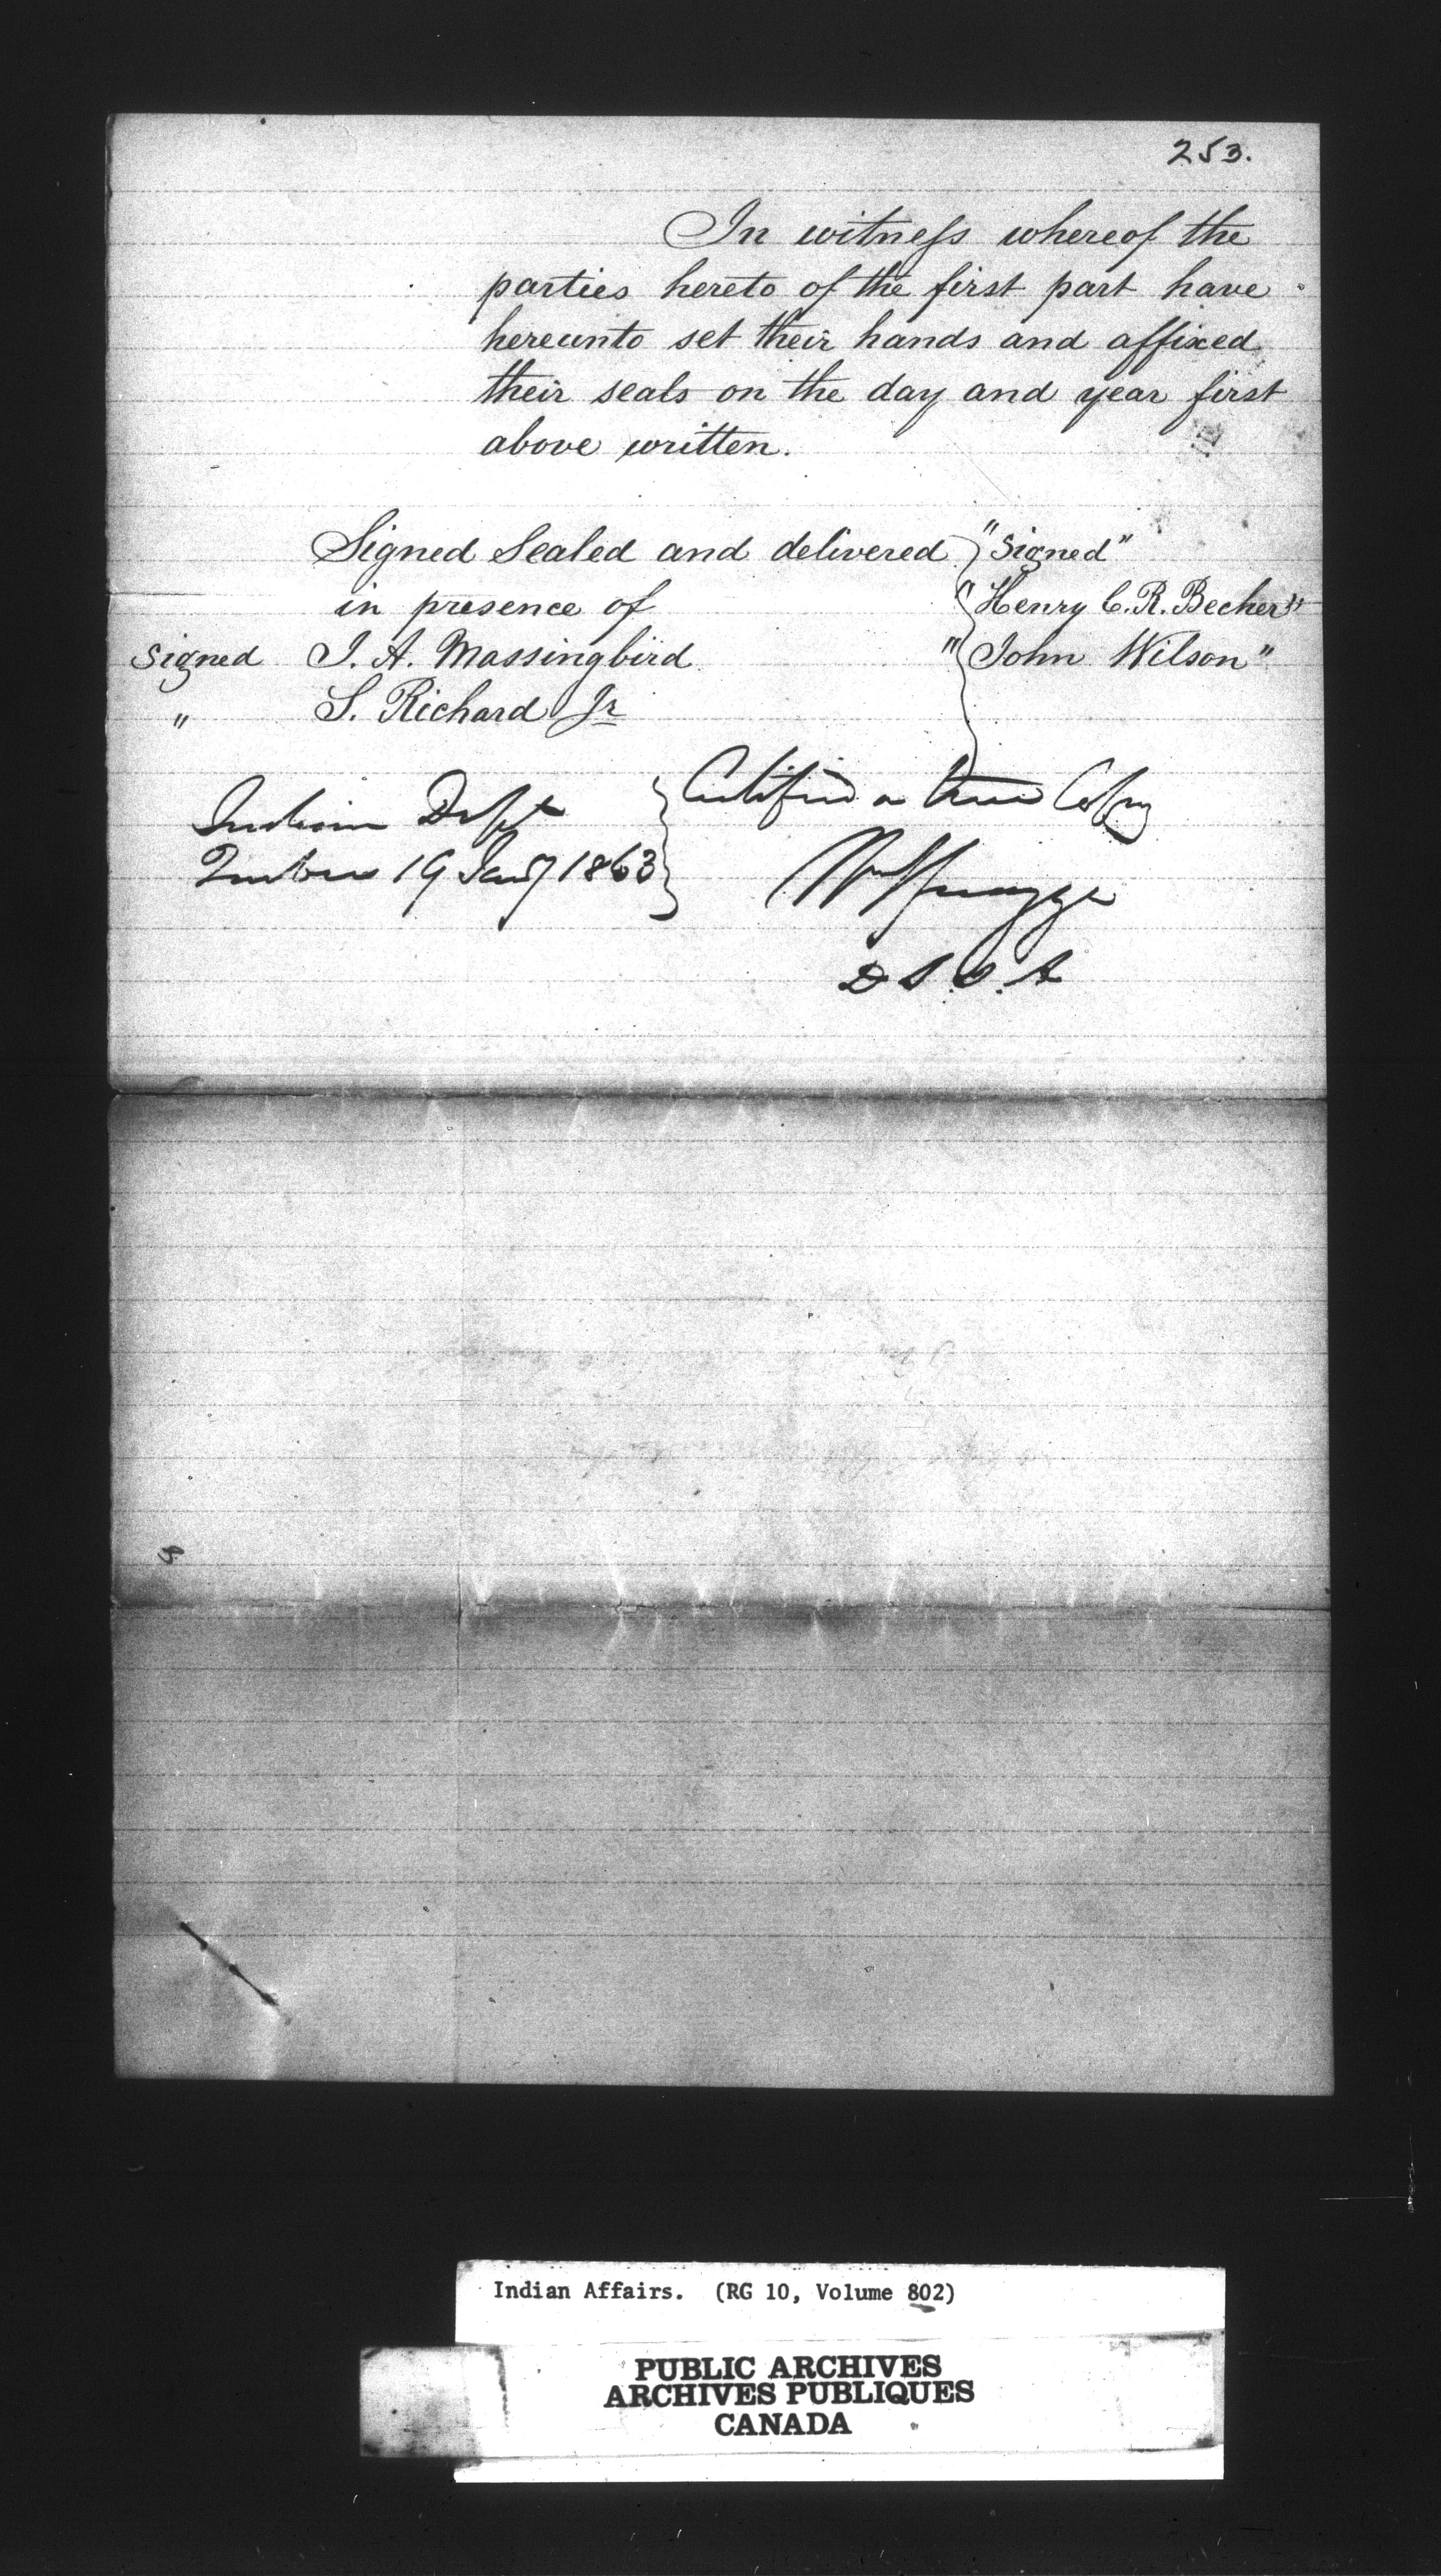 253.
In witness whereof the
parties hereto of the first part have
hereunto set their hands and affixed
their seals on the day and year first
above written.
Signed Sealed and delivered "Signed"
in presence of "Henry C. R. Becher"
Signed J. A. Massingbird "John Wilson"
" S. Richard Jr
Indian Dept Certified a true Copy
Quebec 19 Jany 1863
D S I A
Indian Affairs. (RG 10, Volume 802)
PUBLIC ARCHIVES
ARCHIVES PUBLIQUES
CANADA